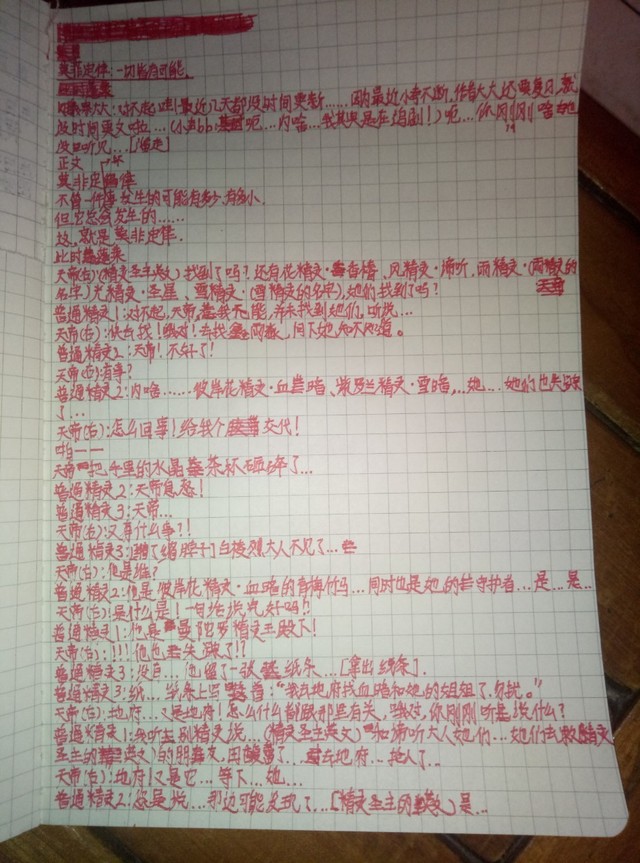 莫非定律:一切皆有可能.
大大:对不起哇!最近几天都没时间更新……因为最近小考不断,作者大大还要复习,就
没时间更文啦…(小声bb:呃…内啥…我其实是在追剧!)呃…你刚刚啥也
没听见…[逃走]
正文
莫非定律
不管一件事发生的可能有多少,有多小.
但它总会发生的……
这,就是莫非定律.
此时
天帝(右):(精灵圣主英文)找到了吗?还有花精灵·香、风精灵·、雨精灵·(雨精灵的
名字)光精灵·圣星、雪精灵·(雪精灵的名字),她们找到了吗?
普通精灵1:对不起,天帝,我无能,并未找到她们,听说…
天帝(右):快去找!哦对!去找,问下她知不知道。
普通精灵2:天帝!不好了!
天帝(右):有事?
普通精灵2:内啥……彼岸花精灵·血暗、紫罗兰精灵·雪暗,…她…她们也失踪
了…
天帝(右):怎么回事!给我个交代!
啪——
天帝把手里的水晶茶杯砸碎了…
普通精灵2:天帝息怒!
普通精灵3:天帝…
天帝(右):又有什么事?!
普通精灵3:[缩了缩脖子]白大人不见了…
天帝(右):他是谁?
普通精灵2:他是彼岸花精灵·血暗的青梅竹马…同时也是她的守护者…是…是…
天帝(右):是什么是!一句给我说完好吗?!
普通精灵1:他是曼陀罗精灵王殿下!
天帝(右):!!!他也失踪了!?
普通精灵3:没有…他留了一张纸条…[拿出纸条].
普通精灵3:纸…纸条上写着:“我去地府找血暗和她的姐姐了,勿扰。”
天帝(右):地府…又是地府!怎么什么都跟那里有关,哦对,你刚刚听是说什么?
普通精灵1:我听别精灵说…(精灵圣主英文)和大人她们…她们去
圣主的(英文)的朋友,因了…去地府…抢人了…
天帝(右):地府!又是它…等下…她…
普通精灵2:您是说…那边可能发现了…[精灵圣主的英文]是…